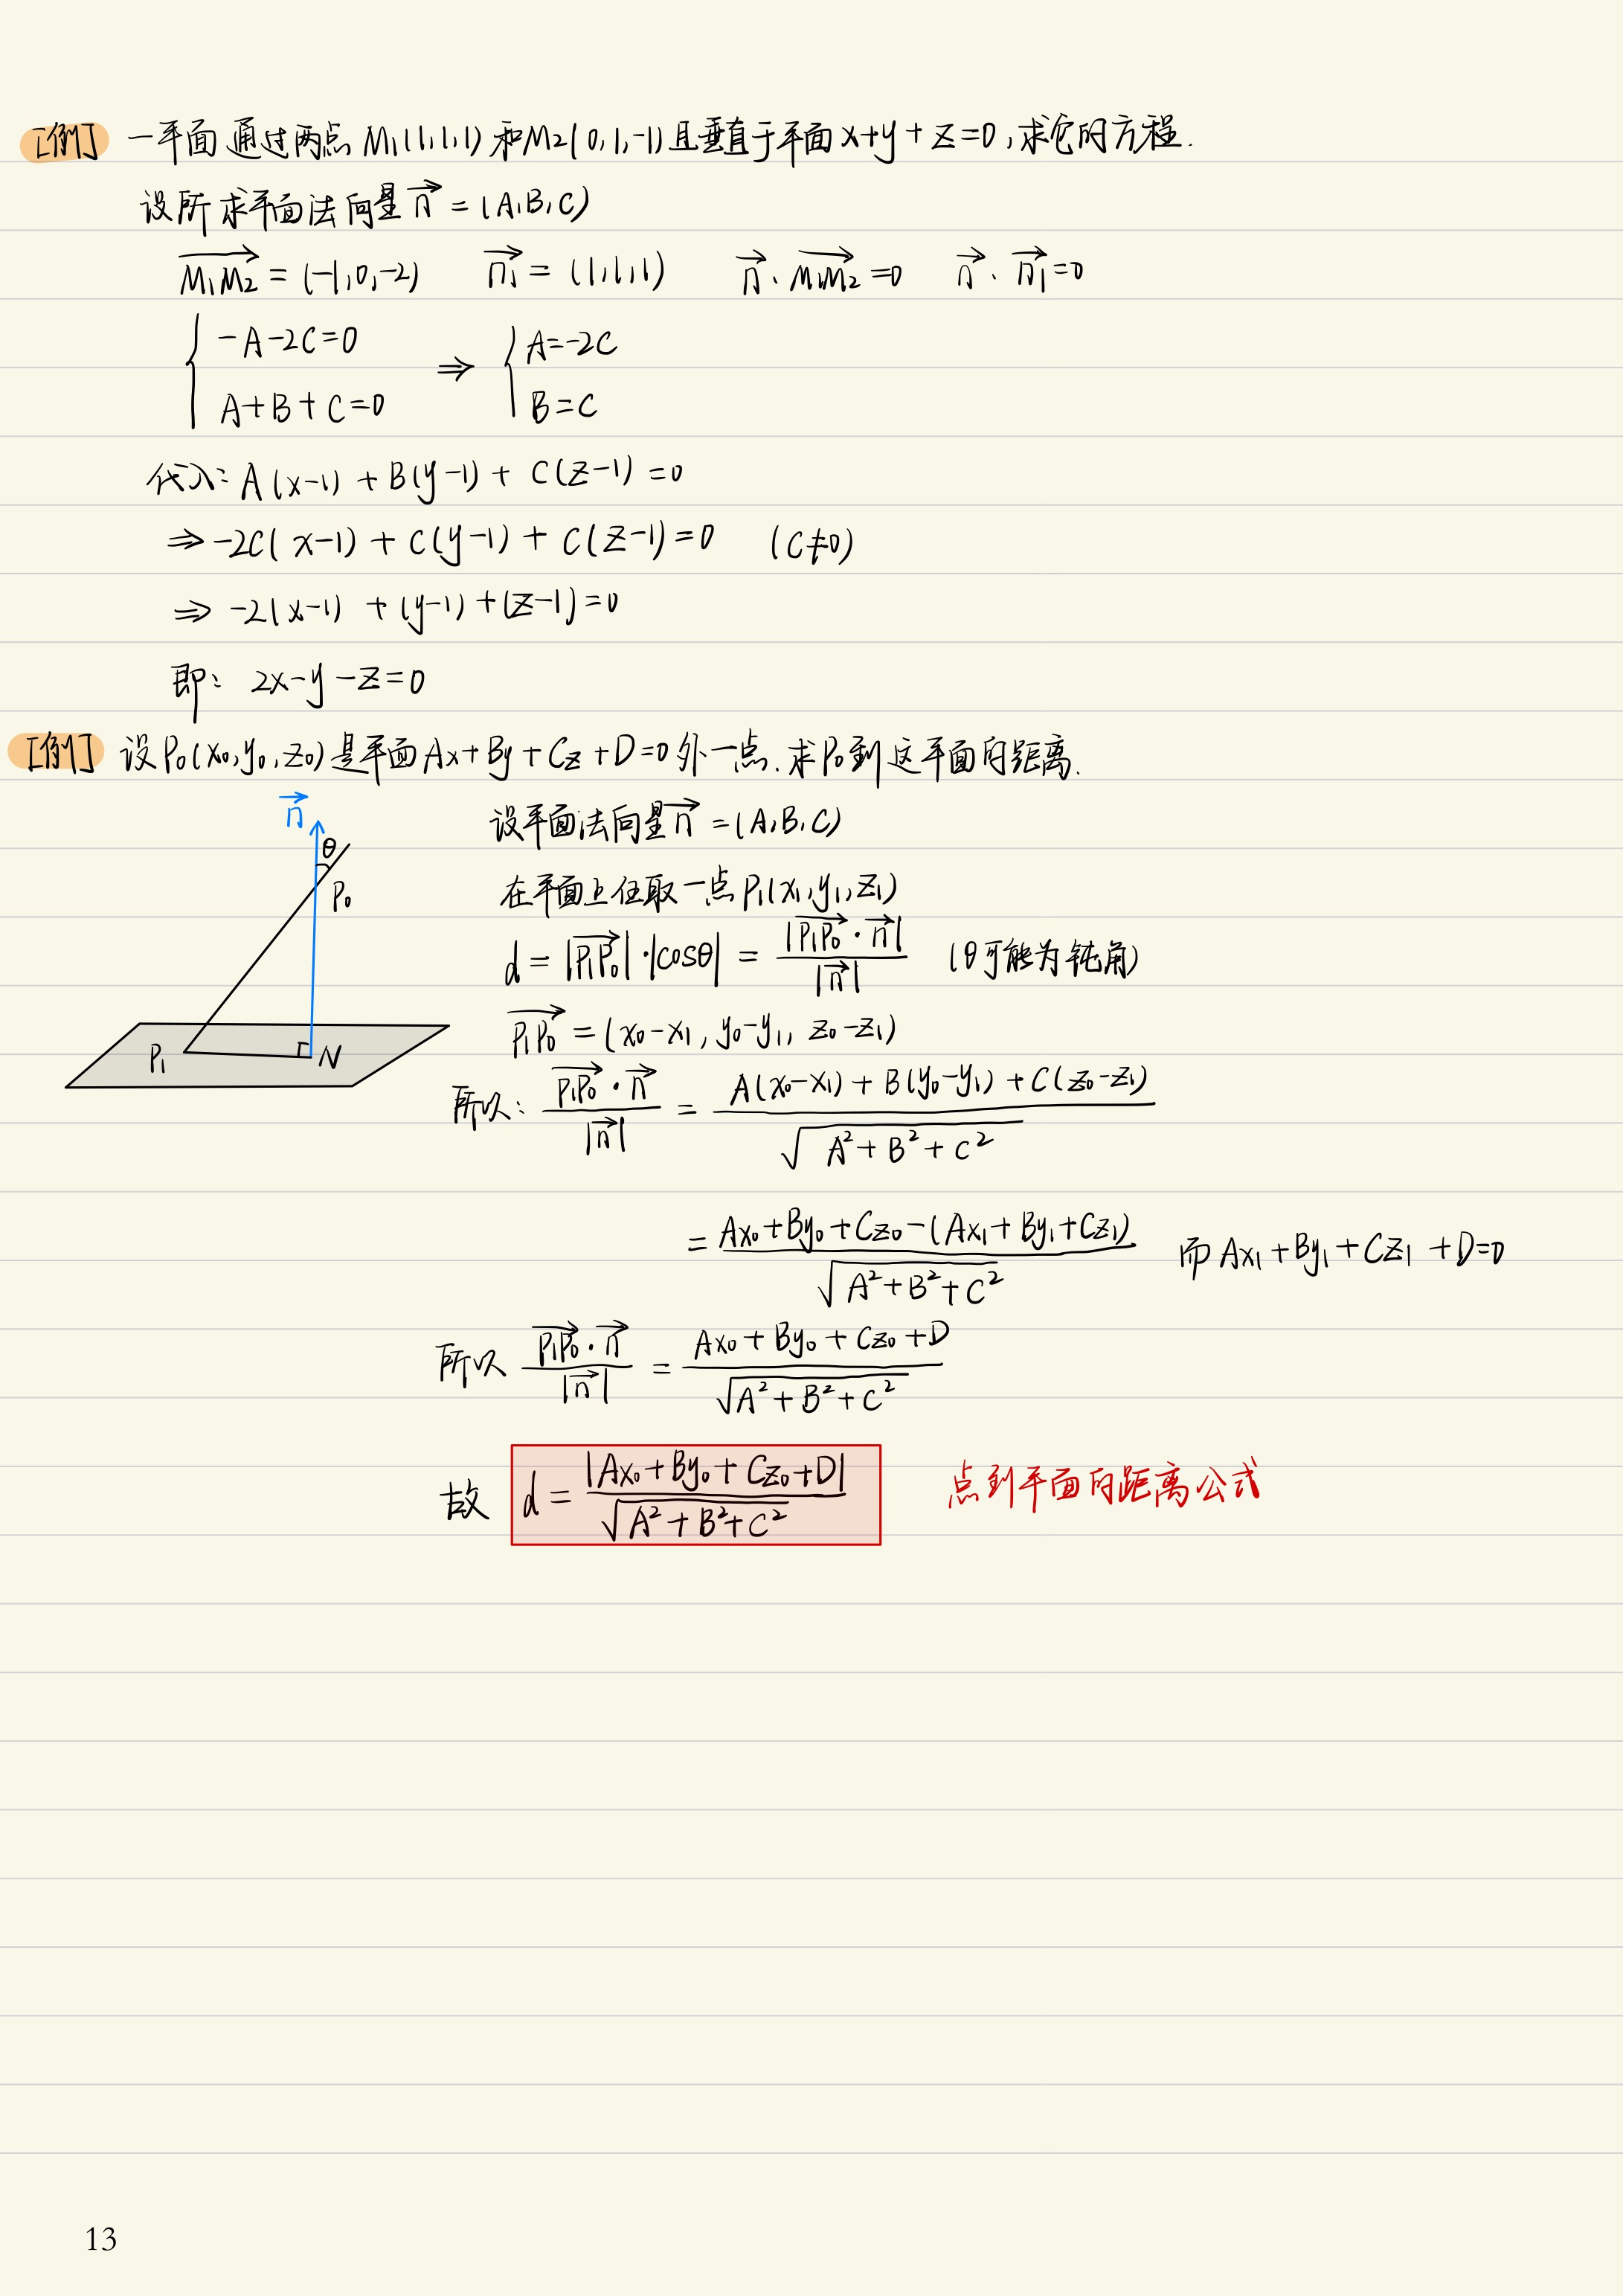 [例] 一平面通过两点 M₁(1,1,1) 和 M₂(0,1,-1) 且垂直于平面 x+y+z=0,求它的方程.
设所求平面法向量 \overrightarrow{n} = (A,B,C)
\overrightarrow{M₁M₂} = (-1,0,-2) \overrightarrow{n₁} = (1,1,1) \overrightarrow{n}·\overrightarrow{M₁M₂}=0 \overrightarrow{n}·\overrightarrow{n₁}=0
{ -A-2C=0 ⇒ { A=-2C
A+B+C=0 B=C
代入: A(x-1)+B(y-1)+C(z-1)=0
⇒ -2C(x-1)+C(y-1)+C(z-1)=0 (C≠0)
⇒ -2(x-1)+(y-1)+(z-1)=0
即: 2x-y-z=0
[例] 设 P₀(x₀,y₀,z₀) 是平面 Ax+By+Cz+D=0 外一点.求P₀到这平面的距离.
\overrightarrow{n}
θ
P₀
P₁
N
设平面法向量 \overrightarrow{n} = (A,B,C)
在平面上任取一点 P₁(x₁,y₁,z₁)
d = |\overrightarrow{P₁P₀}|·|cosθ| = \frac{|\overrightarrow{P₁P₀}·\overrightarrow{n}|}{|\overrightarrow{n}|} (θ可能为钝角)
\overrightarrow{P₁P₀} = (x₀-x₁, y₀-y₁, z₀-z₁)
所以: \frac{\overrightarrow{P₁P₀}·\overrightarrow{n}}{|\overrightarrow{n}|} = \frac{A(x₀-x₁)+B(y₀-y₁)+C(z₀-z₁)}{\sqrt{A²+B²+C²}}
= \frac{Ax₀+By₀+Cz₀-(Ax₁+By₁+Cz₁)}{\sqrt{A²+B²+C²}} 而 Ax₁+By₁+Cz₁+D=0
所以 \frac{\overrightarrow{P₁P₀}·\overrightarrow{n}}{|\overrightarrow{n}|} = \frac{Ax₀+By₀+Cz₀+D}{\sqrt{A²+B²+C²}}
故 d = \frac{|Ax₀+By₀+Cz₀+D|}{\sqrt{A²+B²+C²}} 点到平面的距离公式
13